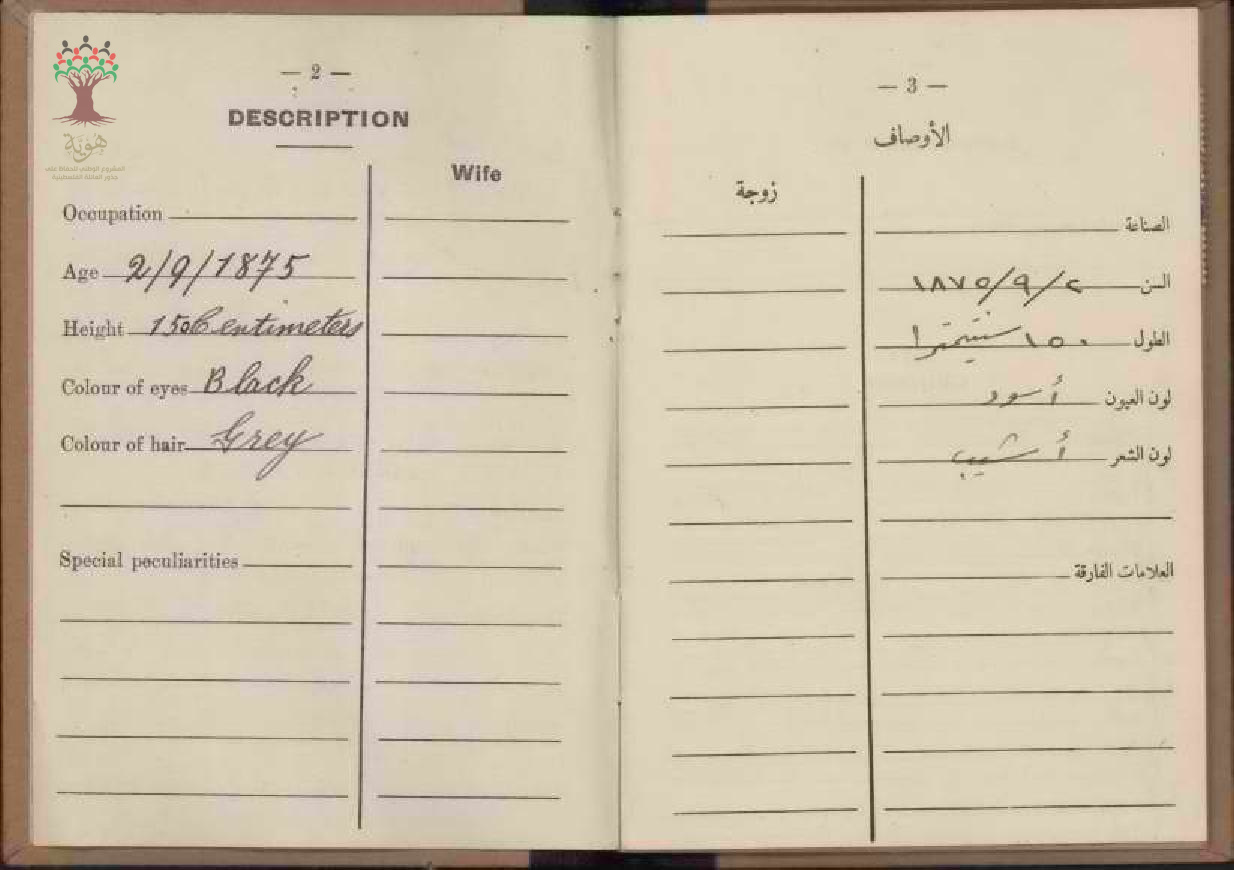 هُوِيَّة
المشروع الوطني للحفاظ على
جذور العائلة الفلسطينية
— 2 —
DESCRIPTION
Wife
Occupation
Age 2/9/1875
Height 150 Centimeters
Colour of eyes Black
Colour of hair Grey
Special peculiarities
— 3 —
الأوصاف
زوجة
الصناعة
السن ٢/٩/١٨٧٥
الطول ١٥٠ سنتيمترا
لون العيون أسود
لون الشعر أشيب
العلامات الفارقة